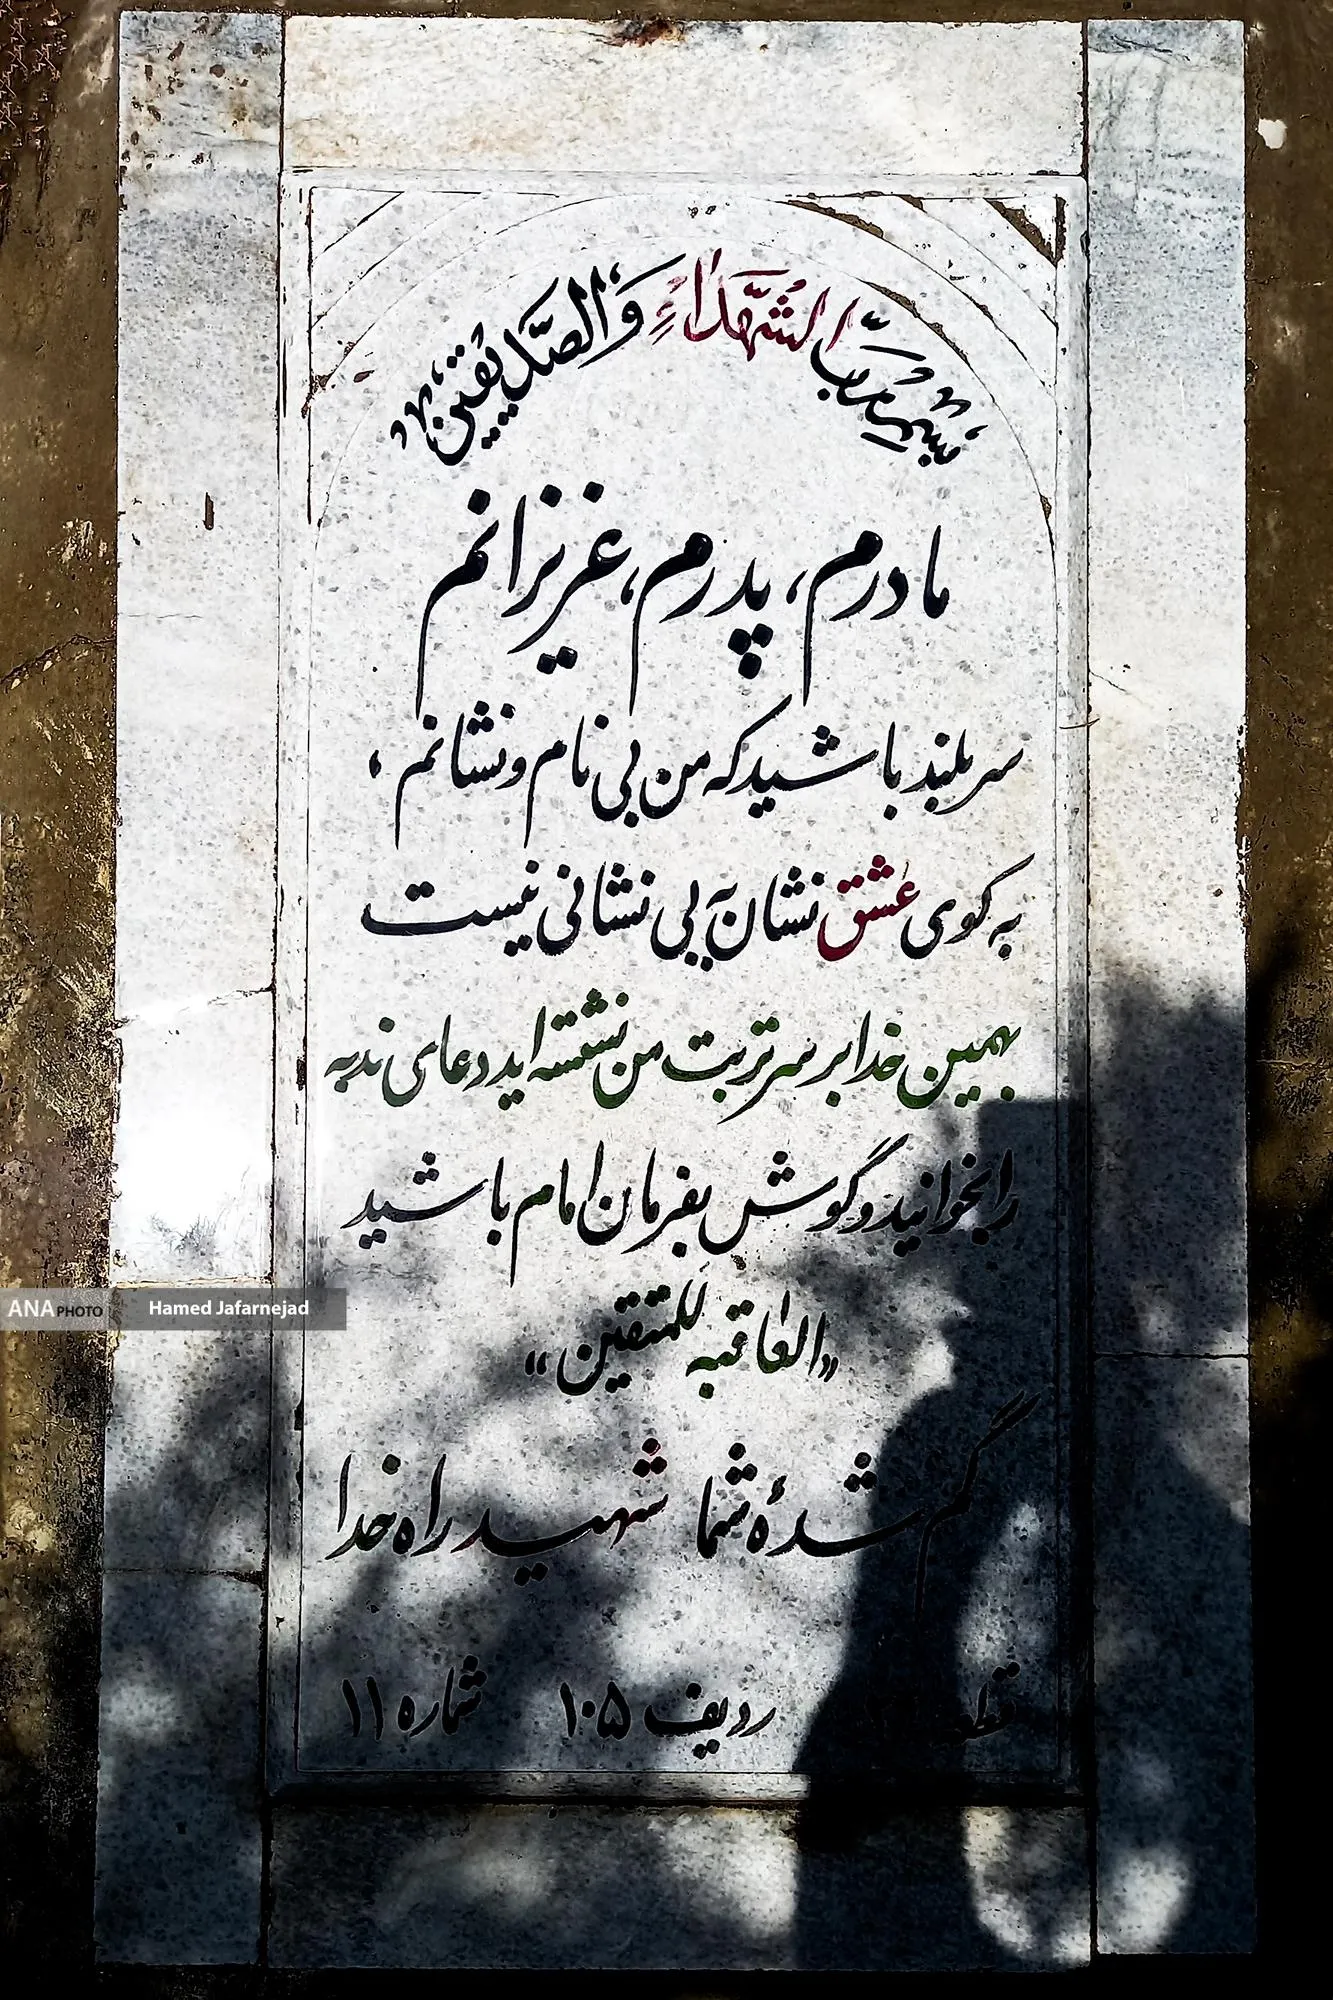 بسم رب الشُّهَداءِ وَالصِّدّیقین
مادرم، پدرم، عزیزانم
سربلند باشید که من بی نام و نشانم،
به کوی عشق نشان به ز بی نشانی نیست
بهمین خدا بر سر تربت من نشسته اید دعای ندبه
را بخوانید و گوش بفرمان امام باشید
«العاقبه للمتقین»
گم شدهٔ شما شهید راه خدا
قطعه ردیف ۱۰۵ شماره ۱۱
ANA PHOTO Hamed Jafarnejad